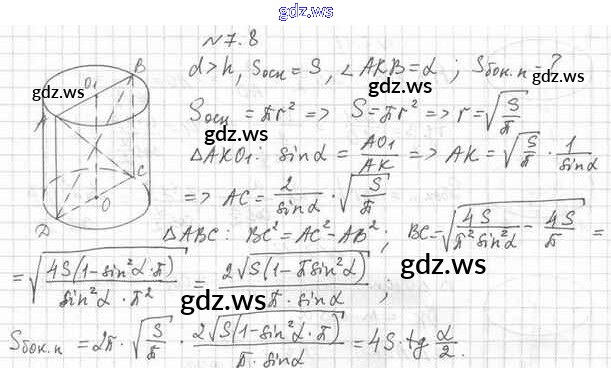 gdz.ws
№7.8
d > h, Sосн = S, ∠AKB = α ; Sбок.п = ?
gdz.ws
gdz.ws
Sосн = πr² => S = πr² => r = √(S/π)
gdz.ws
△AKO₁: sinα = AO₁/AK => AK = √(S/π) · 1/sinα
=> AC = 2/sinα · √(S/π)
△ABC: BC² = AC² - AB² ; BC = √(4S/(π² sin²α) - 4S/π) =
gdz.ws
= √(4S(1-sin²α·π)/(sin²α·π²)) = 2√(S(1-πsin²α))/(π·sinα) ;
gdz.ws
Sбок.п = 2π · √(S/π) · 2√(S(1-sin²α·π))/(π·sinα) = 4S·tg α/2.
gdz.ws
A
B
C
D
O₁
O